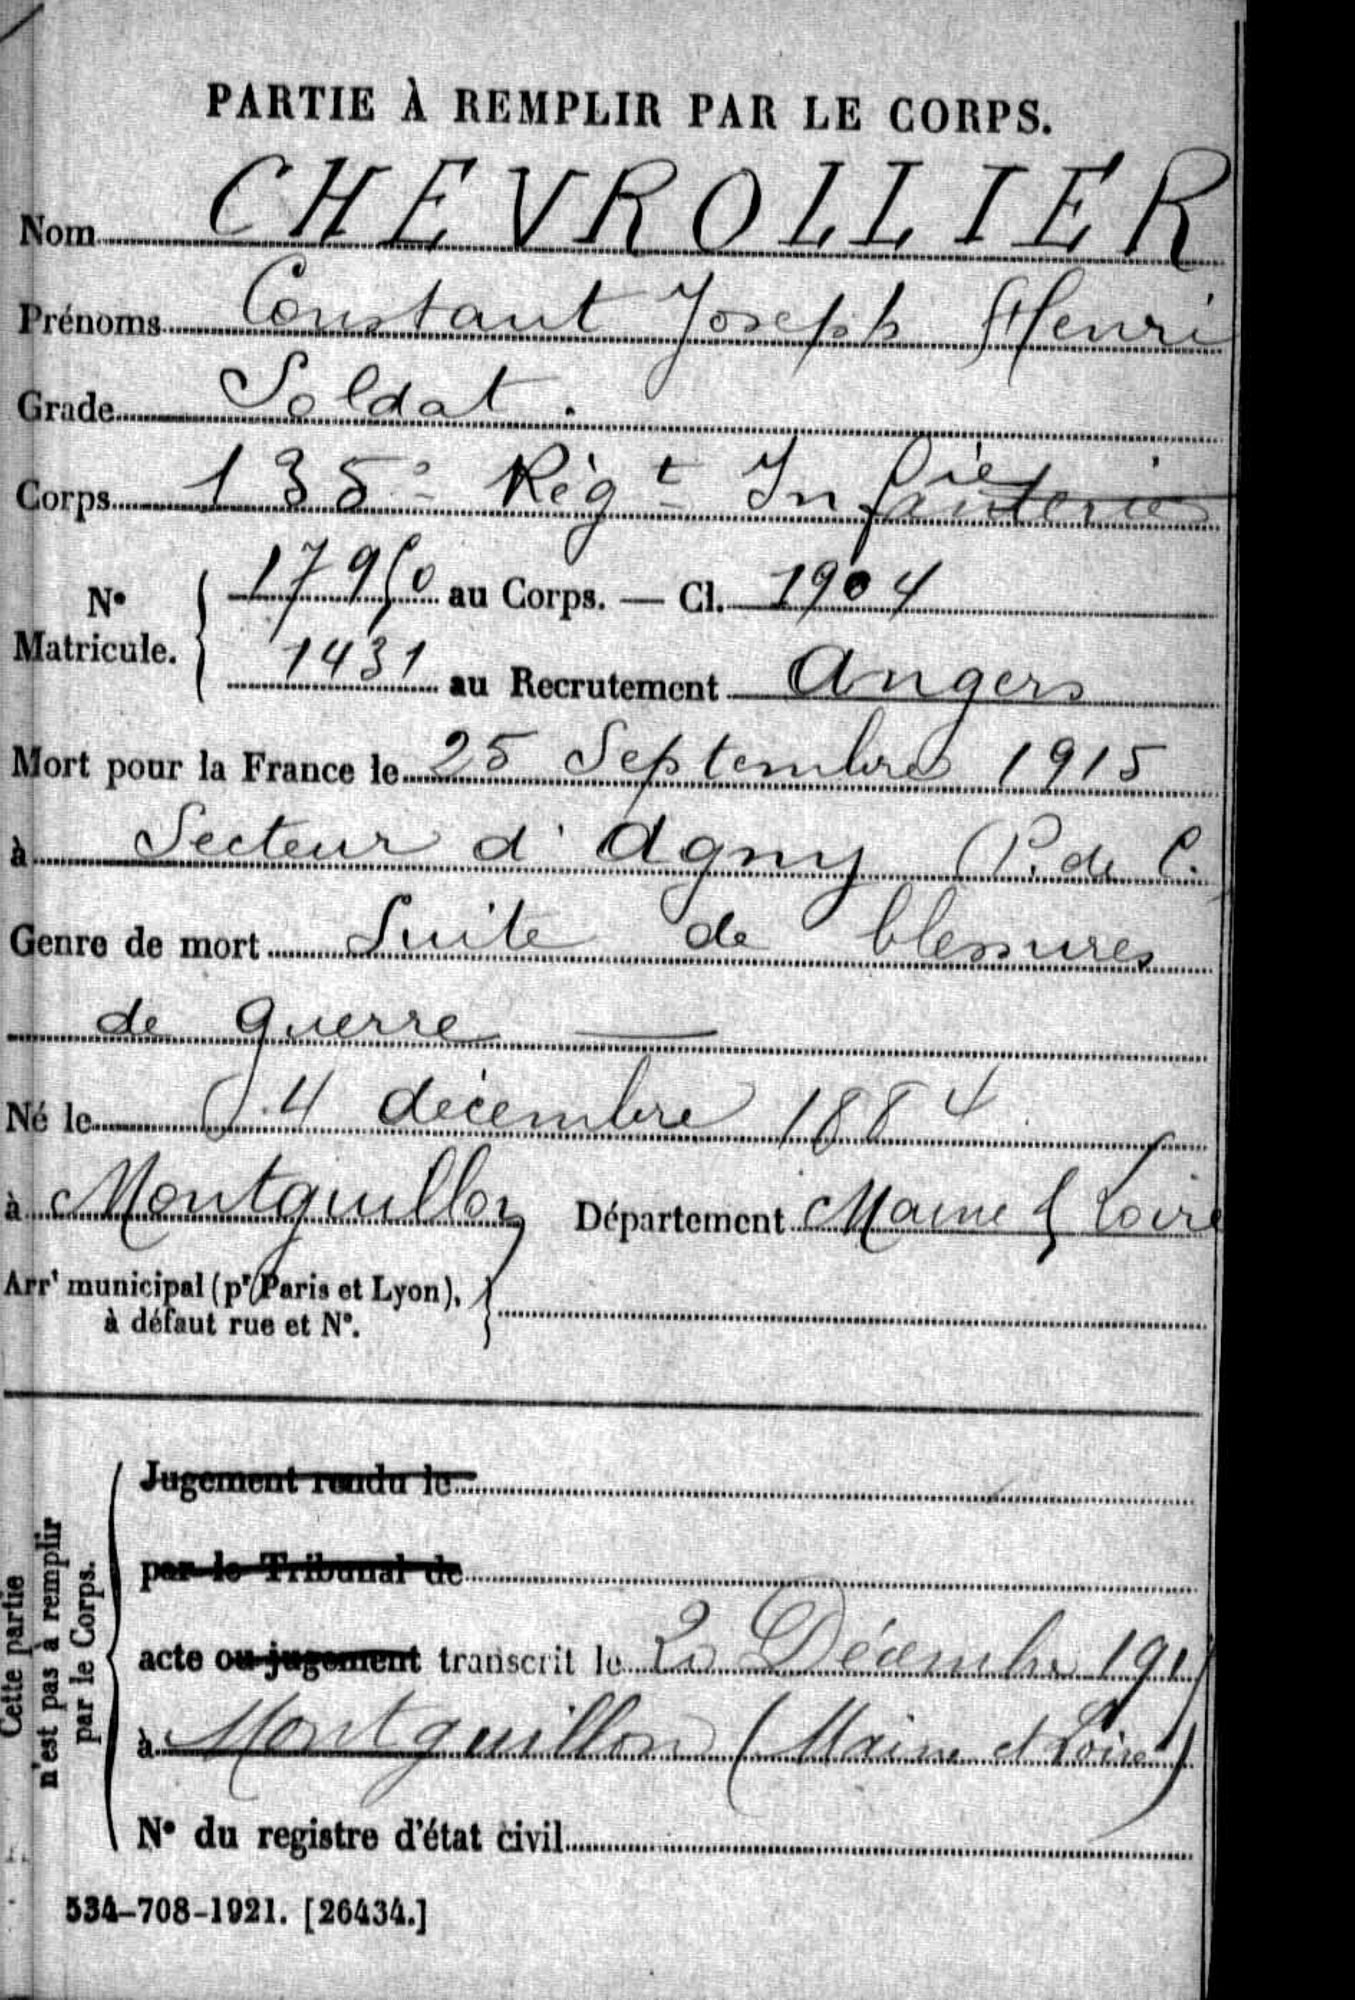 PARTIE À REMPLIR PAR LE CORPS.
Nom CHEVROLLIER
Prénoms Constant Joseph Henri
Grade Soldat.
Corps 135e Régt Infie
N° Matricule. { 17950 au Corps. — Cl. 1904
1431 au Recrutement Angers
Mort pour la France le 25 Septembre 1915
à Secteur d'Agny (P. de C.
Genre de mort Suite de blessures
de guerre —
Né le 4 décembre 1884
à Montguillon Département Maine & Loire
Arrt municipal (pr Paris et Lyon),
à défaut rue et N°.
Cette partie
n'est pas à remplir
par le Corps.
Jugement rendu le
par le Tribunal de
acte ou jugement transcrit le 20 Décembre
à Montguillon (Maine et Loire)
N° du registre d'état civil
534-708-1921. [26434.]